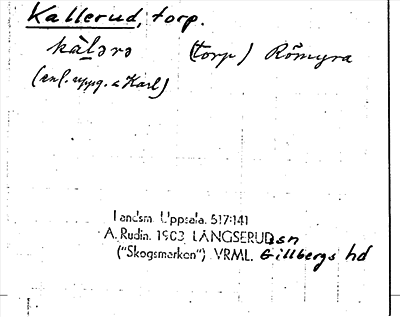 Kallerud, torp.
kàlərə (torp) Römyra
(enl. uppg. a Karl)
Landsm. Uppsala. 517:141
A. Rudin. 1903 LÅNGSERUD sn
("Skogsmarken") VRML. Gillbergs hd